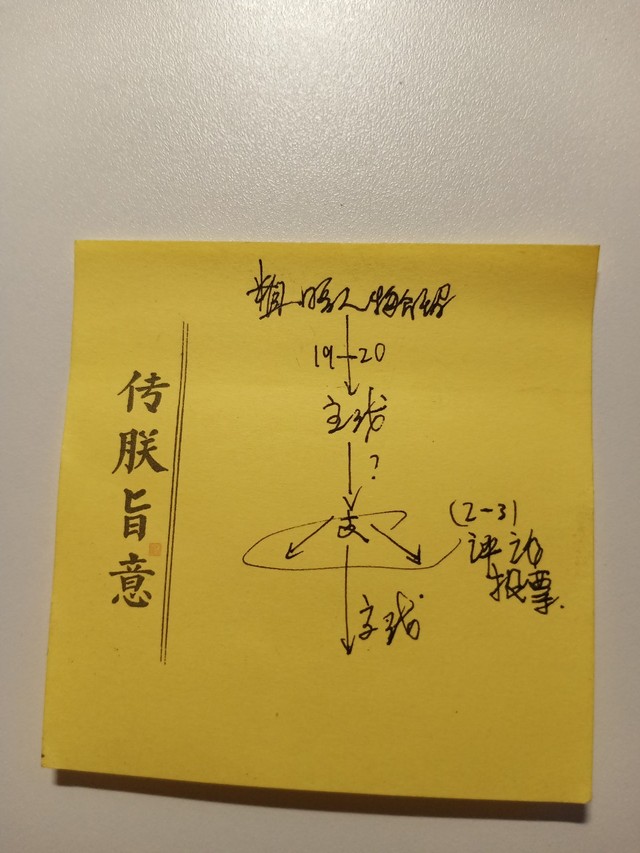 传朕旨意
人物介绍
19—20
主线
?
支
(2-3)
评论
投票.
主线